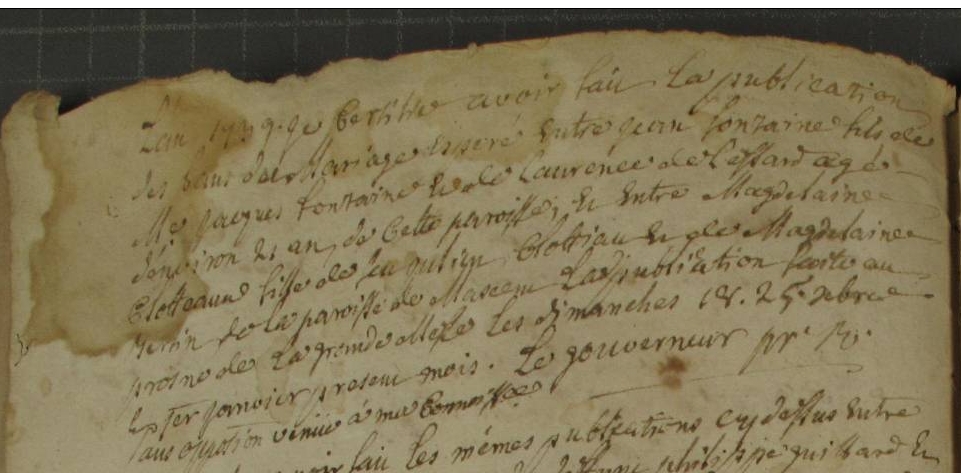 L'an 1739. je Certifie avoir fait La publication
des bans de Mariage esperé Entre jean fontaine fils de
Me jacques fontaine Et de Laurence de Lessard agé
d'environ 21 an, de Cette paroisse; Et Entre Magdelaine
Clotteaux fille de feu julien Clotteau Et de Magdelaine
de la paroisse de La publication faite au
prosne de La grande Messe Les dimanches 18. 25. xbre
1er janvier present mois. Le gouverneur ptre
sans opposition venüe à ma Connoissce
avoir fait les mêmes publications cy dessus Entre
deffunt philippe guittard Et